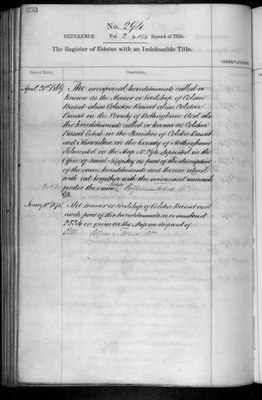 253
No. 294
REFERENCE Vol. 2 p. 253 Record of Title.
The Register of Estates with an Indefeasible Title.
Date of Entry. Description. OBSERVATIONS.
April 20th 1869 The incorporeal hereditaments called or
known as the Manor or Lordship of Colston
Bassett alias Colston Bassett alias Coleston
Basset in the County of Nottingham And also
the hereditaments called or known as Colston
Basset Estate in the Parishes of Colston Basset
and Kinoulton in the County of Nottingham
delineated on the Map No 294 deposited in the
Office of Land Registry as part of the description
of the same hereditaments and thereon edged
with red together with the mines and minerals
under the same
January 11th 1876 The manor or Lordship of Colston Basset and
such part of the hereditaments as is numbered
on the Map in respect of